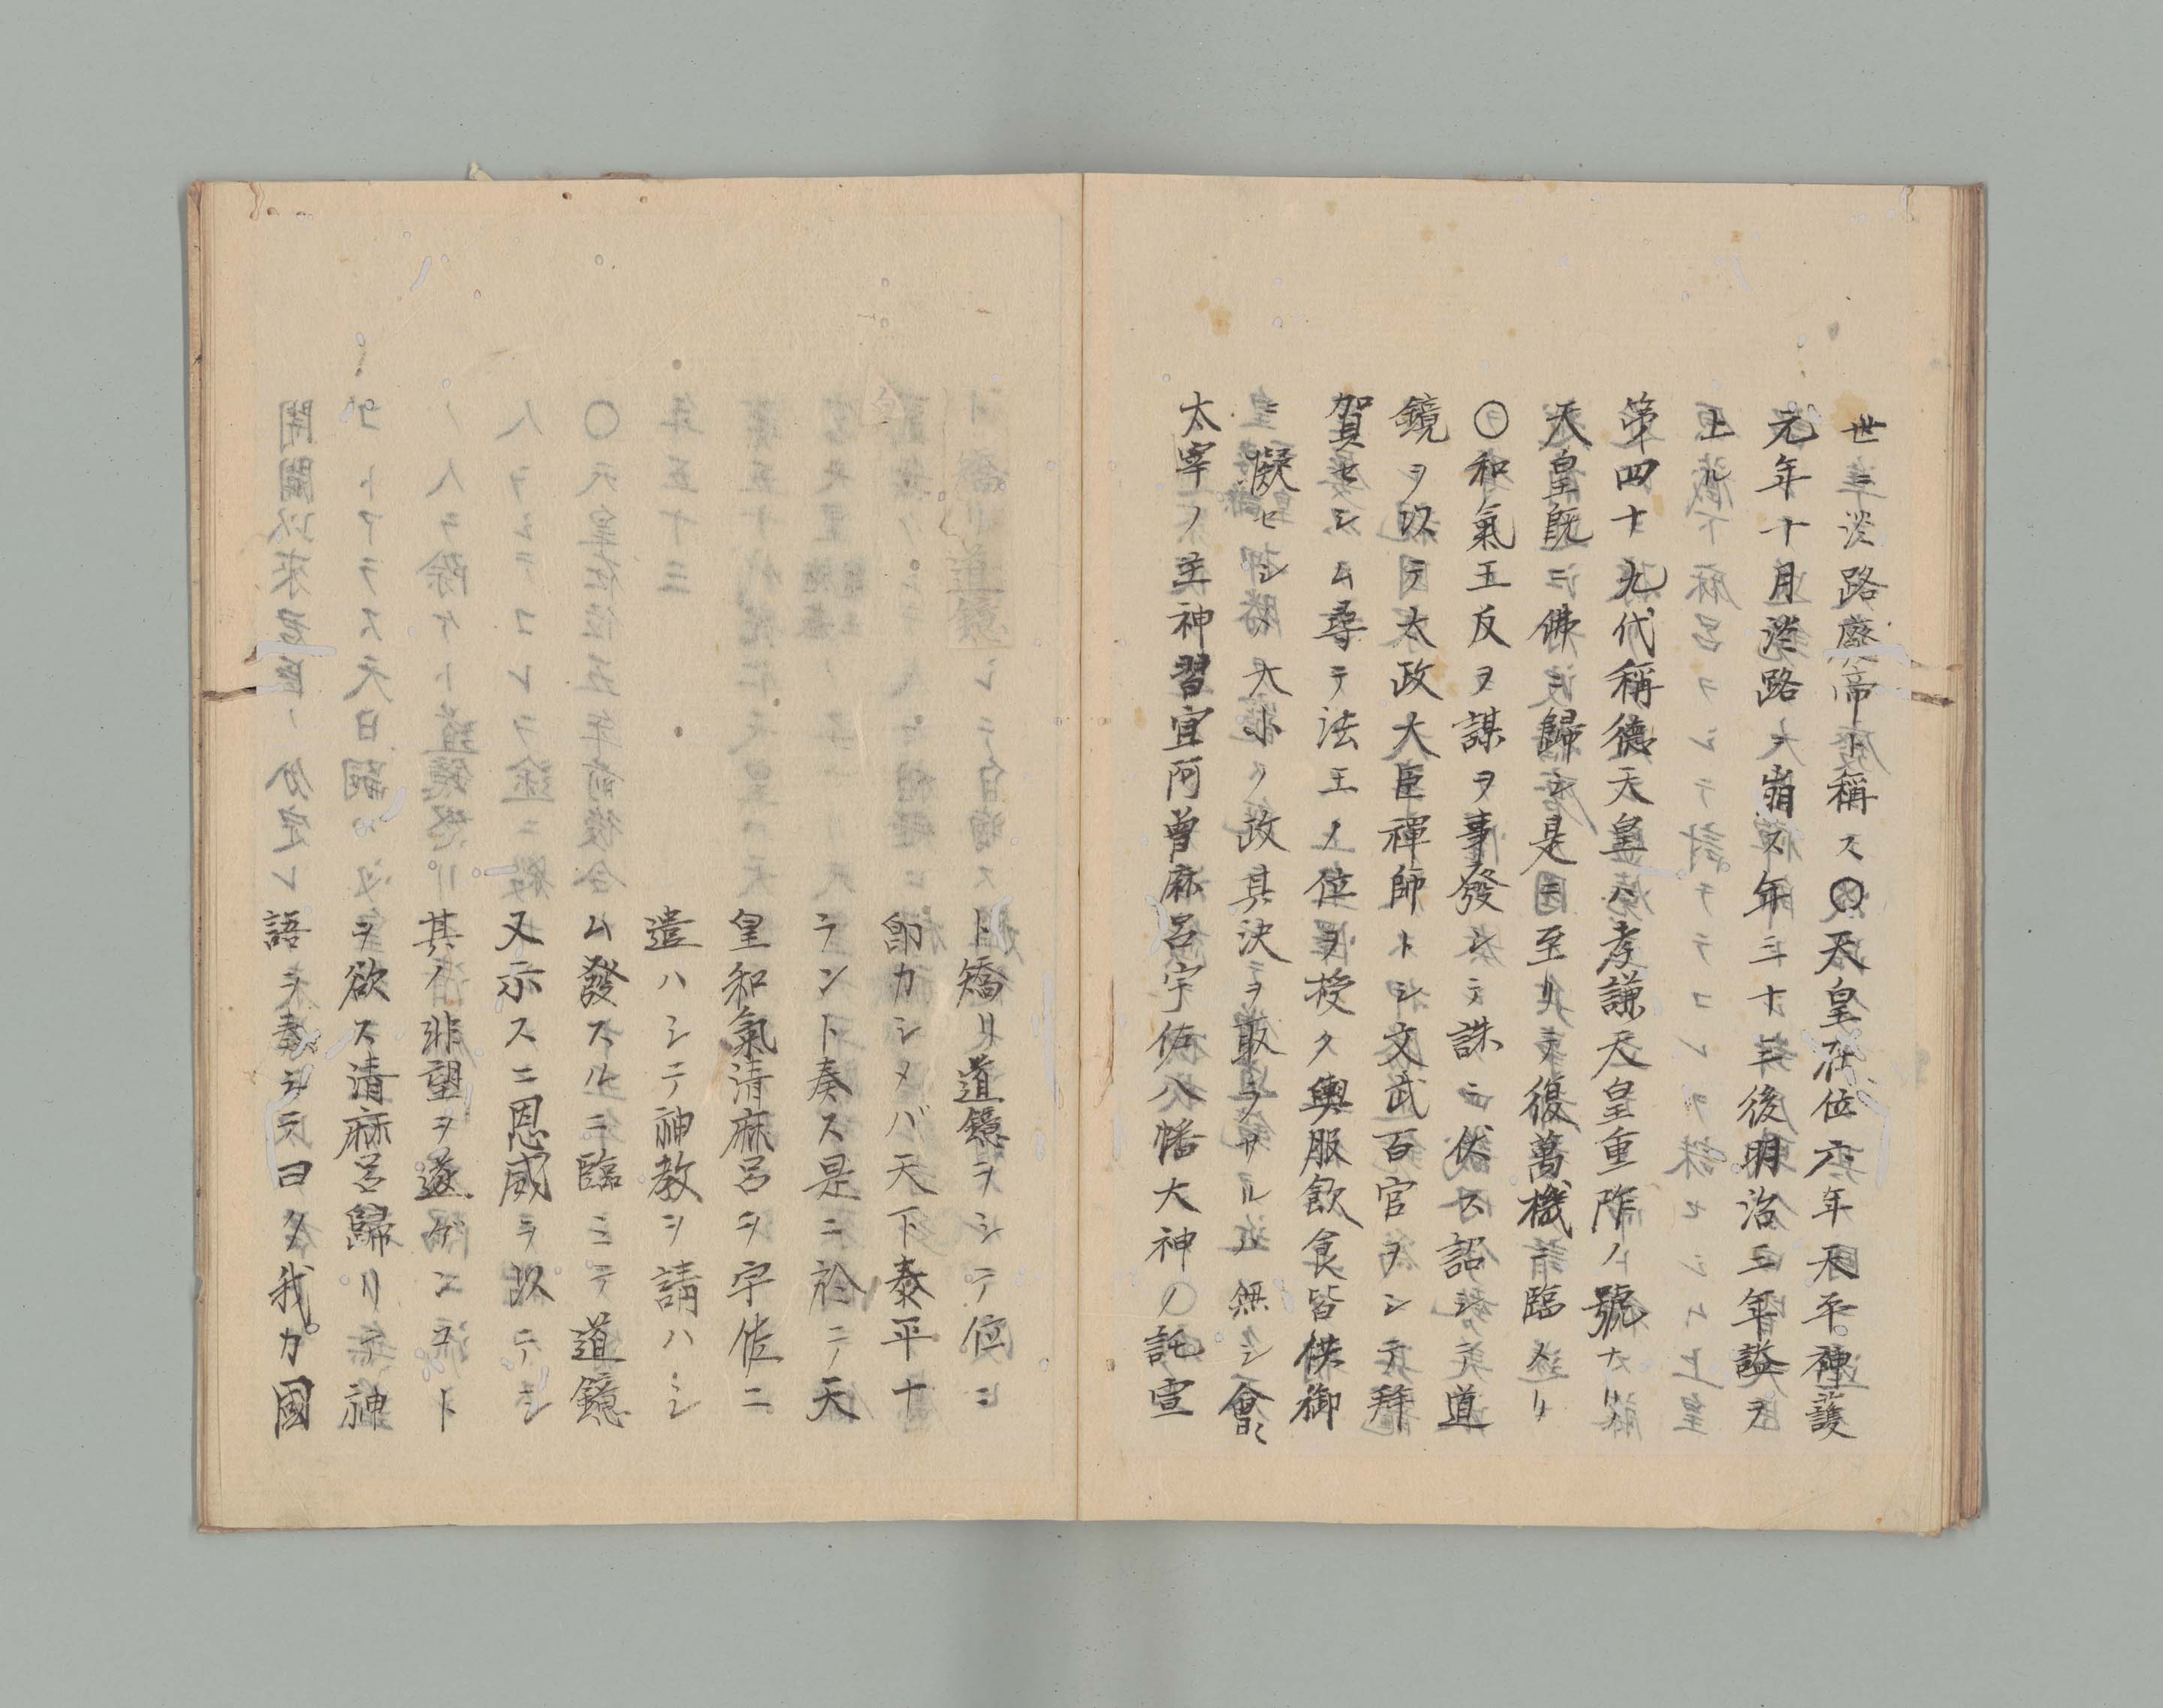 世ニ淡路廢帝ト稱ス〇天皇在位六年天平神護
元年十月淡路ニ崩ス年三十三後明治三年諡ヲ
上ル
第四十九代稱德天皇ハ孝謙天皇重祚ノ號ナリ
天皇既ニ佛ニ歸シ是ニ至リテ復萬機ニ臨メリ
〇和氣王反ヲ謀ヲ事發シテ誅ニ伏ス詔シテ道
鏡ヲ以テ太政大臣禪師トシ文武百官ヲシテ拜
賀セシム尋テ法王ノ位ヲ授ク輿服飲食皆供御
ニ擬セシメ大小ノ政其決ヲ取ラサルハ無シ會〻
太宰ノ主神習宜阿曾麻呂宇佐八幡大神ノ託宣
ト矯リ道鏡ヲシテ位ニ
卽カシメバ天下泰平ナ
ラント奏ス是ニ於テ天
皇和氣清麻呂ヲ宇佐ニ
遣ハシテ神教ヲ請ハシ
ム發スルニ臨ミテ道鏡
又示スニ恩威ヲ以テシ
其ノ非望ヲ遂ゲンコト
ヲ欲ス清麻呂歸リテ神
語ヲ奏シテ曰ク我カ國